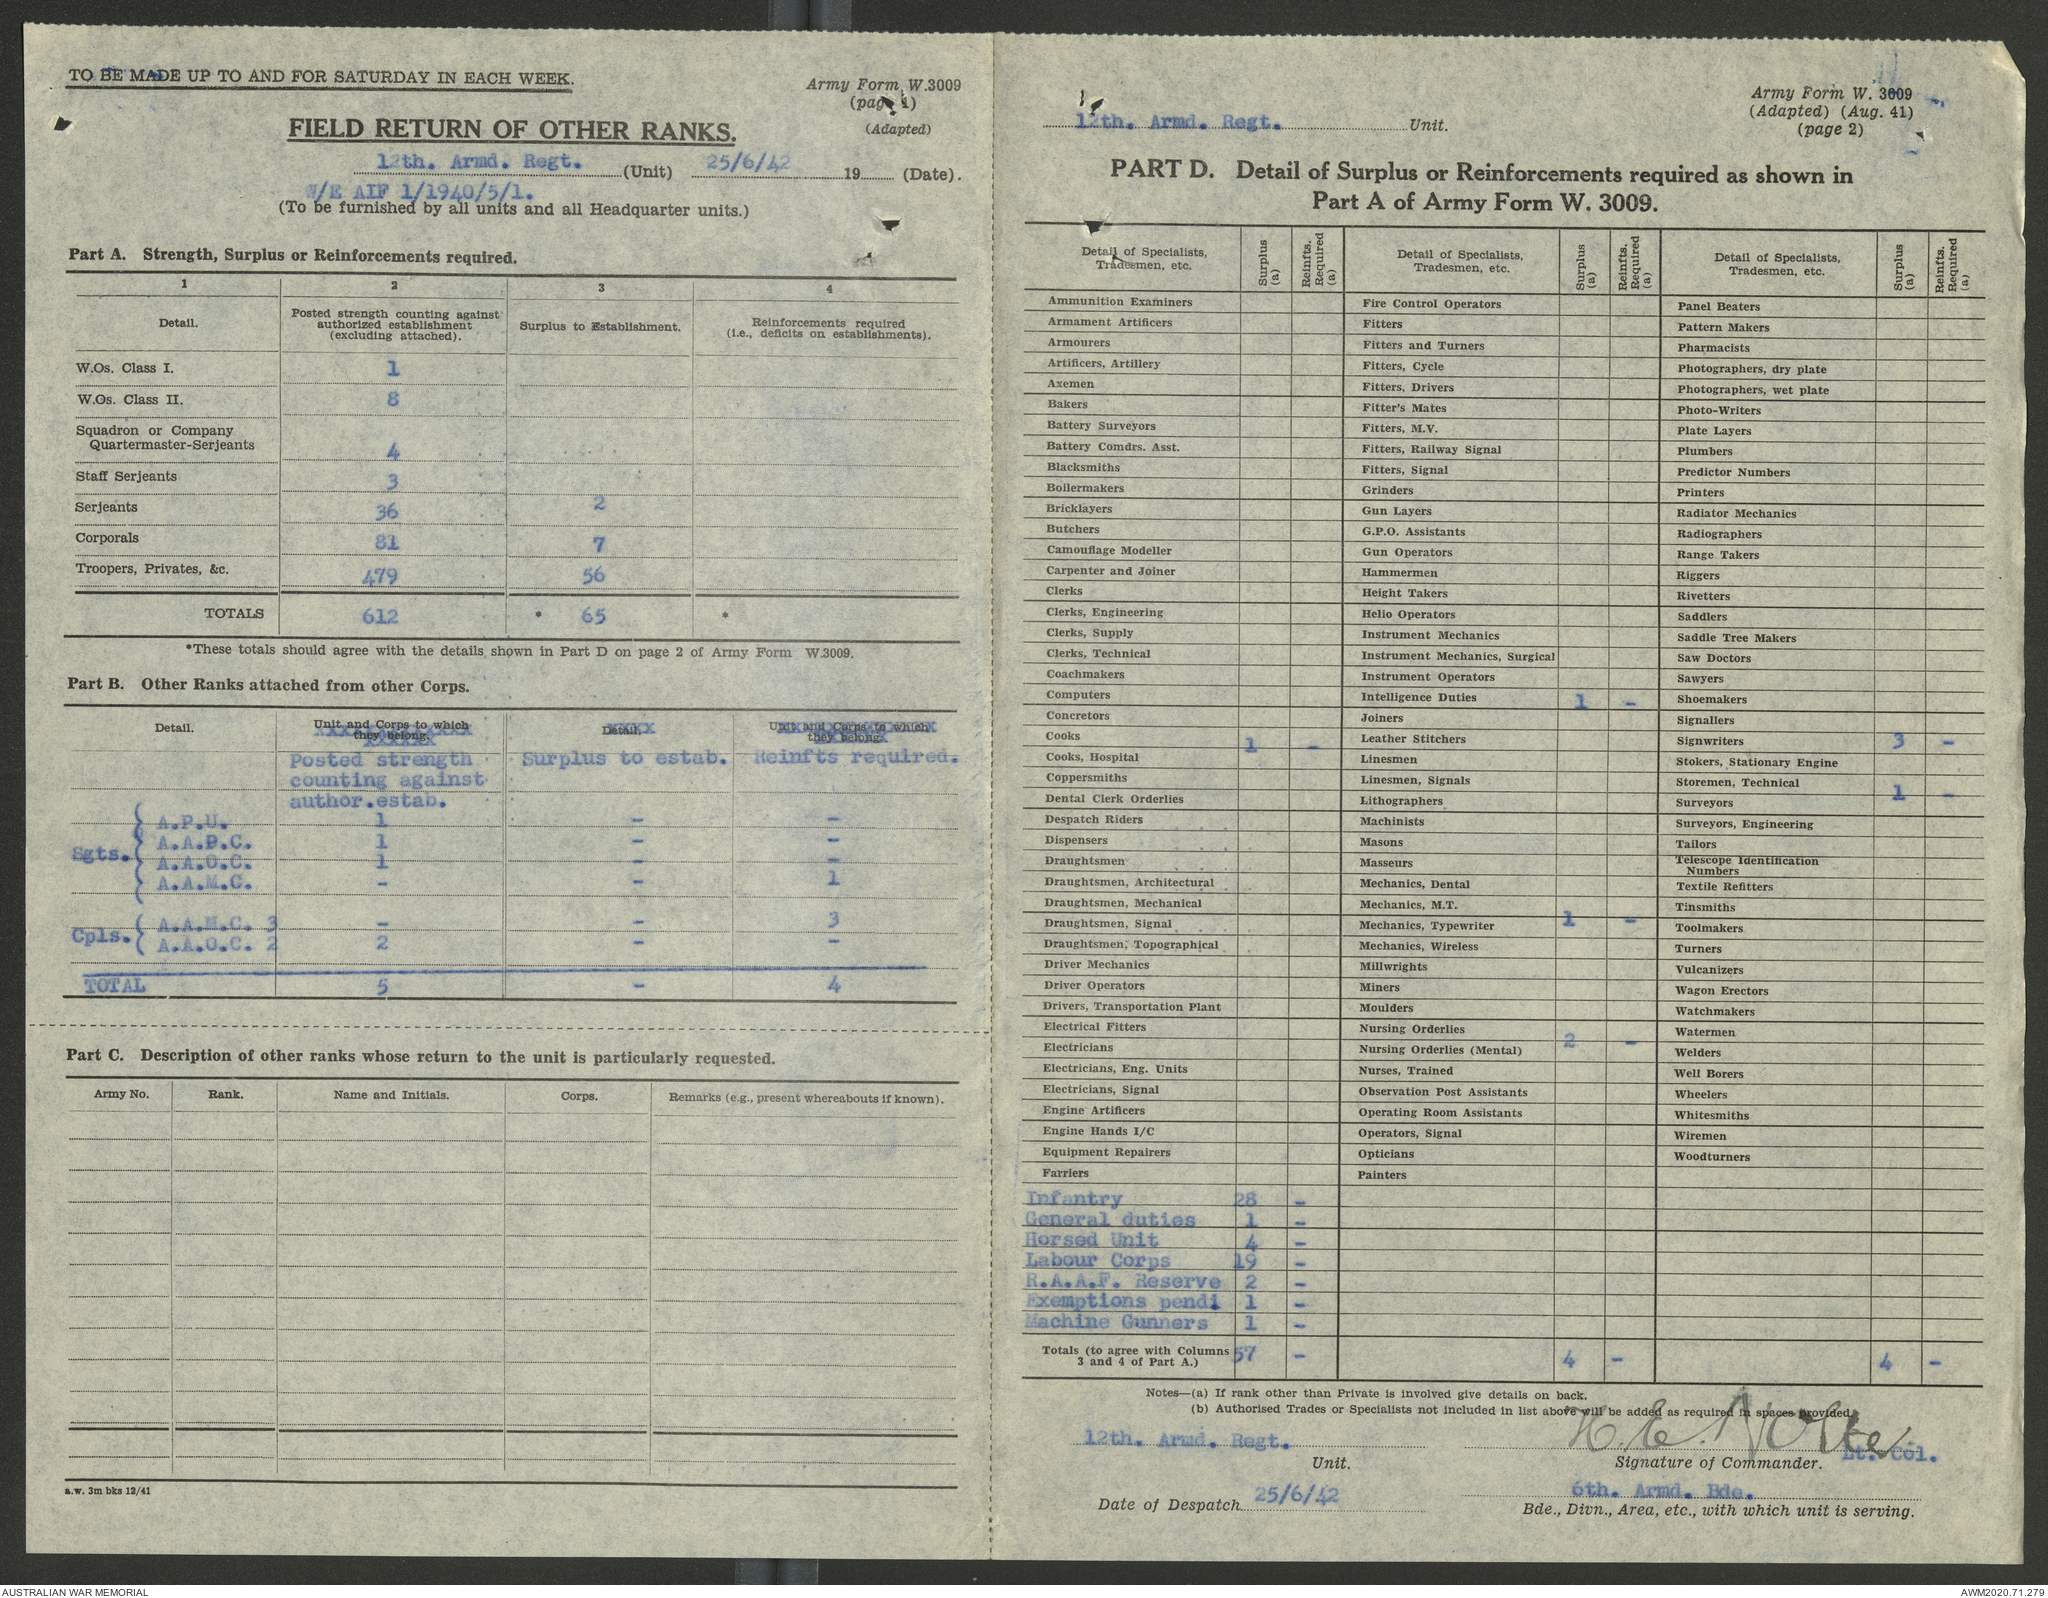 TO BE MADE UP TO AND FOR SATURDAY IN EACH WEEK.
Army Form W.3009
(page 1)
(Adapted)
FIELD RETURN OF OTHER RANKS.
12th. Armd. Regt. (Unit) 25/6/42 19 (Date).
W/E AIF 1/1940/5/1.
(To be furnished by all units and all Headquarter units.)
Part A. Strength, Surplus or Reinforcements required.
1 2 3 4
Detail. Posted strength counting against authorized establishment (excluding attached). Surplus to Establishment. Reinforcements required (i.e., deficits on establishments).
W.Os. Class I. 1
W.Os. Class II. 8
Squadron or Company
Quartermaster-Serjeants 4
Staff Serjeants 3
Serjeants 36 2
Corporals 81 7
Troopers, Privates, &c. 479 56
TOTALS 612 * 65 *
*These totals should agree with the details shown in Part D on page 2 of Army Form W.3009.
Part B. Other Ranks attached from other Corps.
Detail. Unit and Corps to which they belong. Detail. Unit and Corps to which they belong.
Posted strength Surplus to estab. Reinfts required.
counting against
author.estab.
Sgts. A.P.U. 1 - -
A.A.P.C. 1 - -
A.A.O.C. 1 - -
A.A.M.C. - - 1
Cpls. A.A.M.C. 3 - - 3
A.A.O.C. 2 2 - -
TOTAL 5 - 4
Part C. Description of other ranks whose return to the unit is particularly requested.
Army No. Rank. Name and Initials. Corps. Remarks (e.g., present whereabouts if known).
a.w. 3m bks 12/41
Army Form W. 3009
(Adapted) (Aug. 41)
(page 2)
12th. Armd. Regt. Unit.
PART D. Detail of Surplus or Reinforcements required as shown in
Part A of Army Form W. 3009.
Detail of Specialists, Tradesmen, etc. Surplus (a) Reinfts. Required (a) Detail of Specialists, Tradesmen, etc. Surplus (a) Reinfts. Required (a) Detail of Specialists, Tradesmen, etc. Surplus (a) Reinfts. Required (a)
Ammunition Examiners Fire Control Operators Panel Beaters
Armament Artificers Fitters Pattern Makers
Armourers Fitters and Turners Pharmacists
Artificers, Artillery Fitters, Cycle Photographers, dry plate
Axemen Fitters, Drivers Photographers, wet plate
Bakers Fitter's Mates Photo-Writers
Battery Surveyors Fitters, M.V. Plate Layers
Battery Comdrs. Asst. Fitters, Railway Signal Plumbers
Blacksmiths Fitters, Signal Predictor Numbers
Boilermakers Grinders Printers
Bricklayers Gun Layers Radiator Mechanics
Butchers G.P.O. Assistants Radiographers
Camouflage Modeller Gun Operators Range Takers
Carpenter and Joiner Hammermen Riggers
Clerks Height Takers Rivetters
Clerks, Engineering Helio Operators Saddlers
Clerks, Supply Instrument Mechanics Saddle Tree Makers
Clerks, Technical Instrument Mechanics, Surgical Saw Doctors
Coachmakers Instrument Operators Sawyers
Computers Intelligence Duties 1 - Shoemakers
Concretors Joiners Signallers
Cooks 1 - Leather Stitchers Signwriters 3 -
Cooks, Hospital Linesmen Stokers, Stationary Engine
Coppersmiths Linesmen, Signals Storemen, Technical 1 -
Dental Clerk Orderlies Lithographers Surveyors
Despatch Riders Machinists Surveyors, Engineering
Dispensers Masons Tailors
Draughtsmen Masseurs Telescope Identification Numbers
Draughtsmen, Architectural Mechanics, Dental Textile Refitters
Draughtsmen, Mechanical Mechanics, M.T. Tinsmiths
Draughtsmen, Signal Mechanics, Typewriter 1 - Toolmakers
Draughtsmen, Topographical Mechanics, Wireless Turners
Driver Mechanics Millwrights Vulcanizers
Driver Operators Miners Wagon Erectors
Drivers, Transportation Plant Moulders Watchmakers
Electrical Fitters Nursing Orderlies 2 - Watermen
Electricians Nursing Orderlies (Mental) Welders
Electricians, Eng. Units Nurses, Trained Well Borers
Electricians, Signal Observation Post Assistants Wheelers
Engine Artificers Operating Room Assistants Whitesmiths
Engine Hands I/C Operators, Signal Wiremen
Equipment Repairers Opticians Woodturners
Farriers Painters
Infantry 28 -
General duties 1 -
Horsed Unit 4 -
Labour Corps 19 -
R.A.A.F. Reserve 2 -
Exemptions pendi 1 -
Machine Gunners 1 -
Totals (to agree with Columns 3 and 4 of Part A.) 57 - 4 - 4 -
Notes—(a) If rank other than Private is involved give details on back.
(b) Authorised Trades or Specialists not included in list above will be added as required in spaces provided.
12th. Armd. Regt. H. E. Nolte Lt. Col.
Unit. Signature of Commander.
Date of Despatch 25/6/42 6th. Armd. Bde.
Bde., Divn., Area, etc., with which unit is serving.
AUSTRALIAN WAR MEMORIAL
AWM2020.71.279